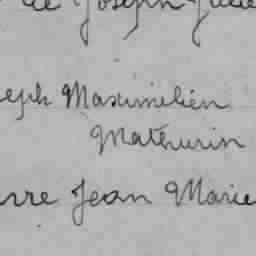 de Joseph Julie
eph Maximilien
Mathurin
rre Jean Marie